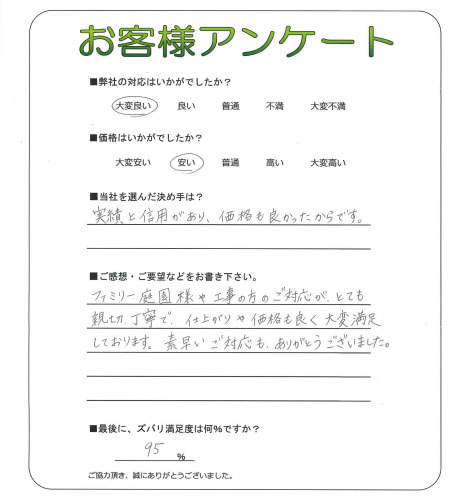 お客様アンケート
■弊社の対応はいかがでしたか？
大変良い 良い 普通 不満 大変不満
■価格はいかがでしたか？
大変安い 安い 普通 高い 大変高い
■当社を選んだ決め手は？
実績と信用があり、価格も良かったからです。
■ご感想・ご要望などをお書き下さい。
ファミリー庭園様や工事の方のご対応が、とても
親切、丁寧で、仕上がりや価格も良く大変満足
しております。素早いご対応も、ありがとうございました。
■最後に、ズバリ満足度は何％ですか？
95 %
ご協力頂き、誠にありがとうございました。